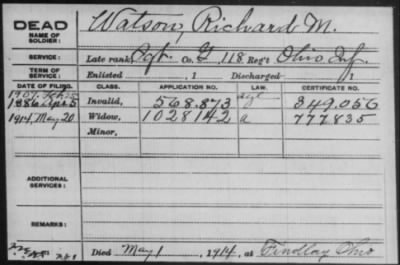 DEAD
NAME OF SOLDIER: Watson, Richard M.
SERVICE: Late rank, Sgt. Co. G, 118 Reg't Ohio Inf.
TERM OF SERVICE: Enlisted , 1 Discharged , 1
DATE OF FILING. CLASS. APPLICATION NO. LAW. CERTIFICATE NO.
1907
1886 Apr 5 Invalid, 568.873 349.056
1914, May 20 Widow, 1028142 a 777835
Minor,
ADDITIONAL SERVICES:
REMARKS:
Died May 1 , 1914, at Findlay Ohio